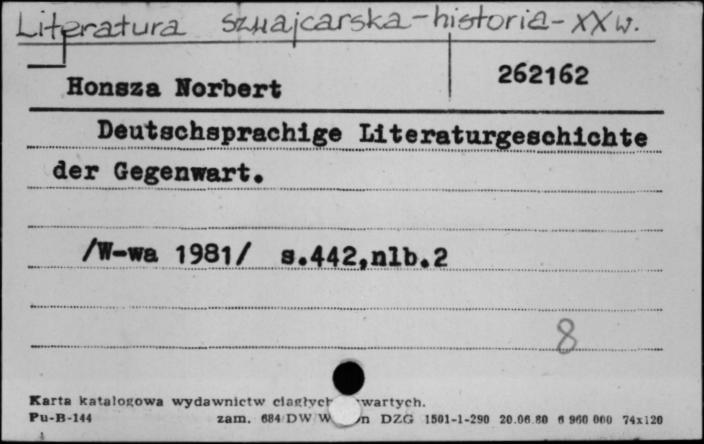 Literatura szwajcarska - historia - XX w.
Honsza Norbert 262162
Deutschsprachige Literaturgeschichte
der Gegenwart.
/W-wa 1981/ s.442,nlb.2
8
Karta katalogowa wydawnictw ciągłych wartych.
Pu-B-144 zam. 684/DW/W n DZG 1501-1-290 20.06.80 6 960 000 74x120